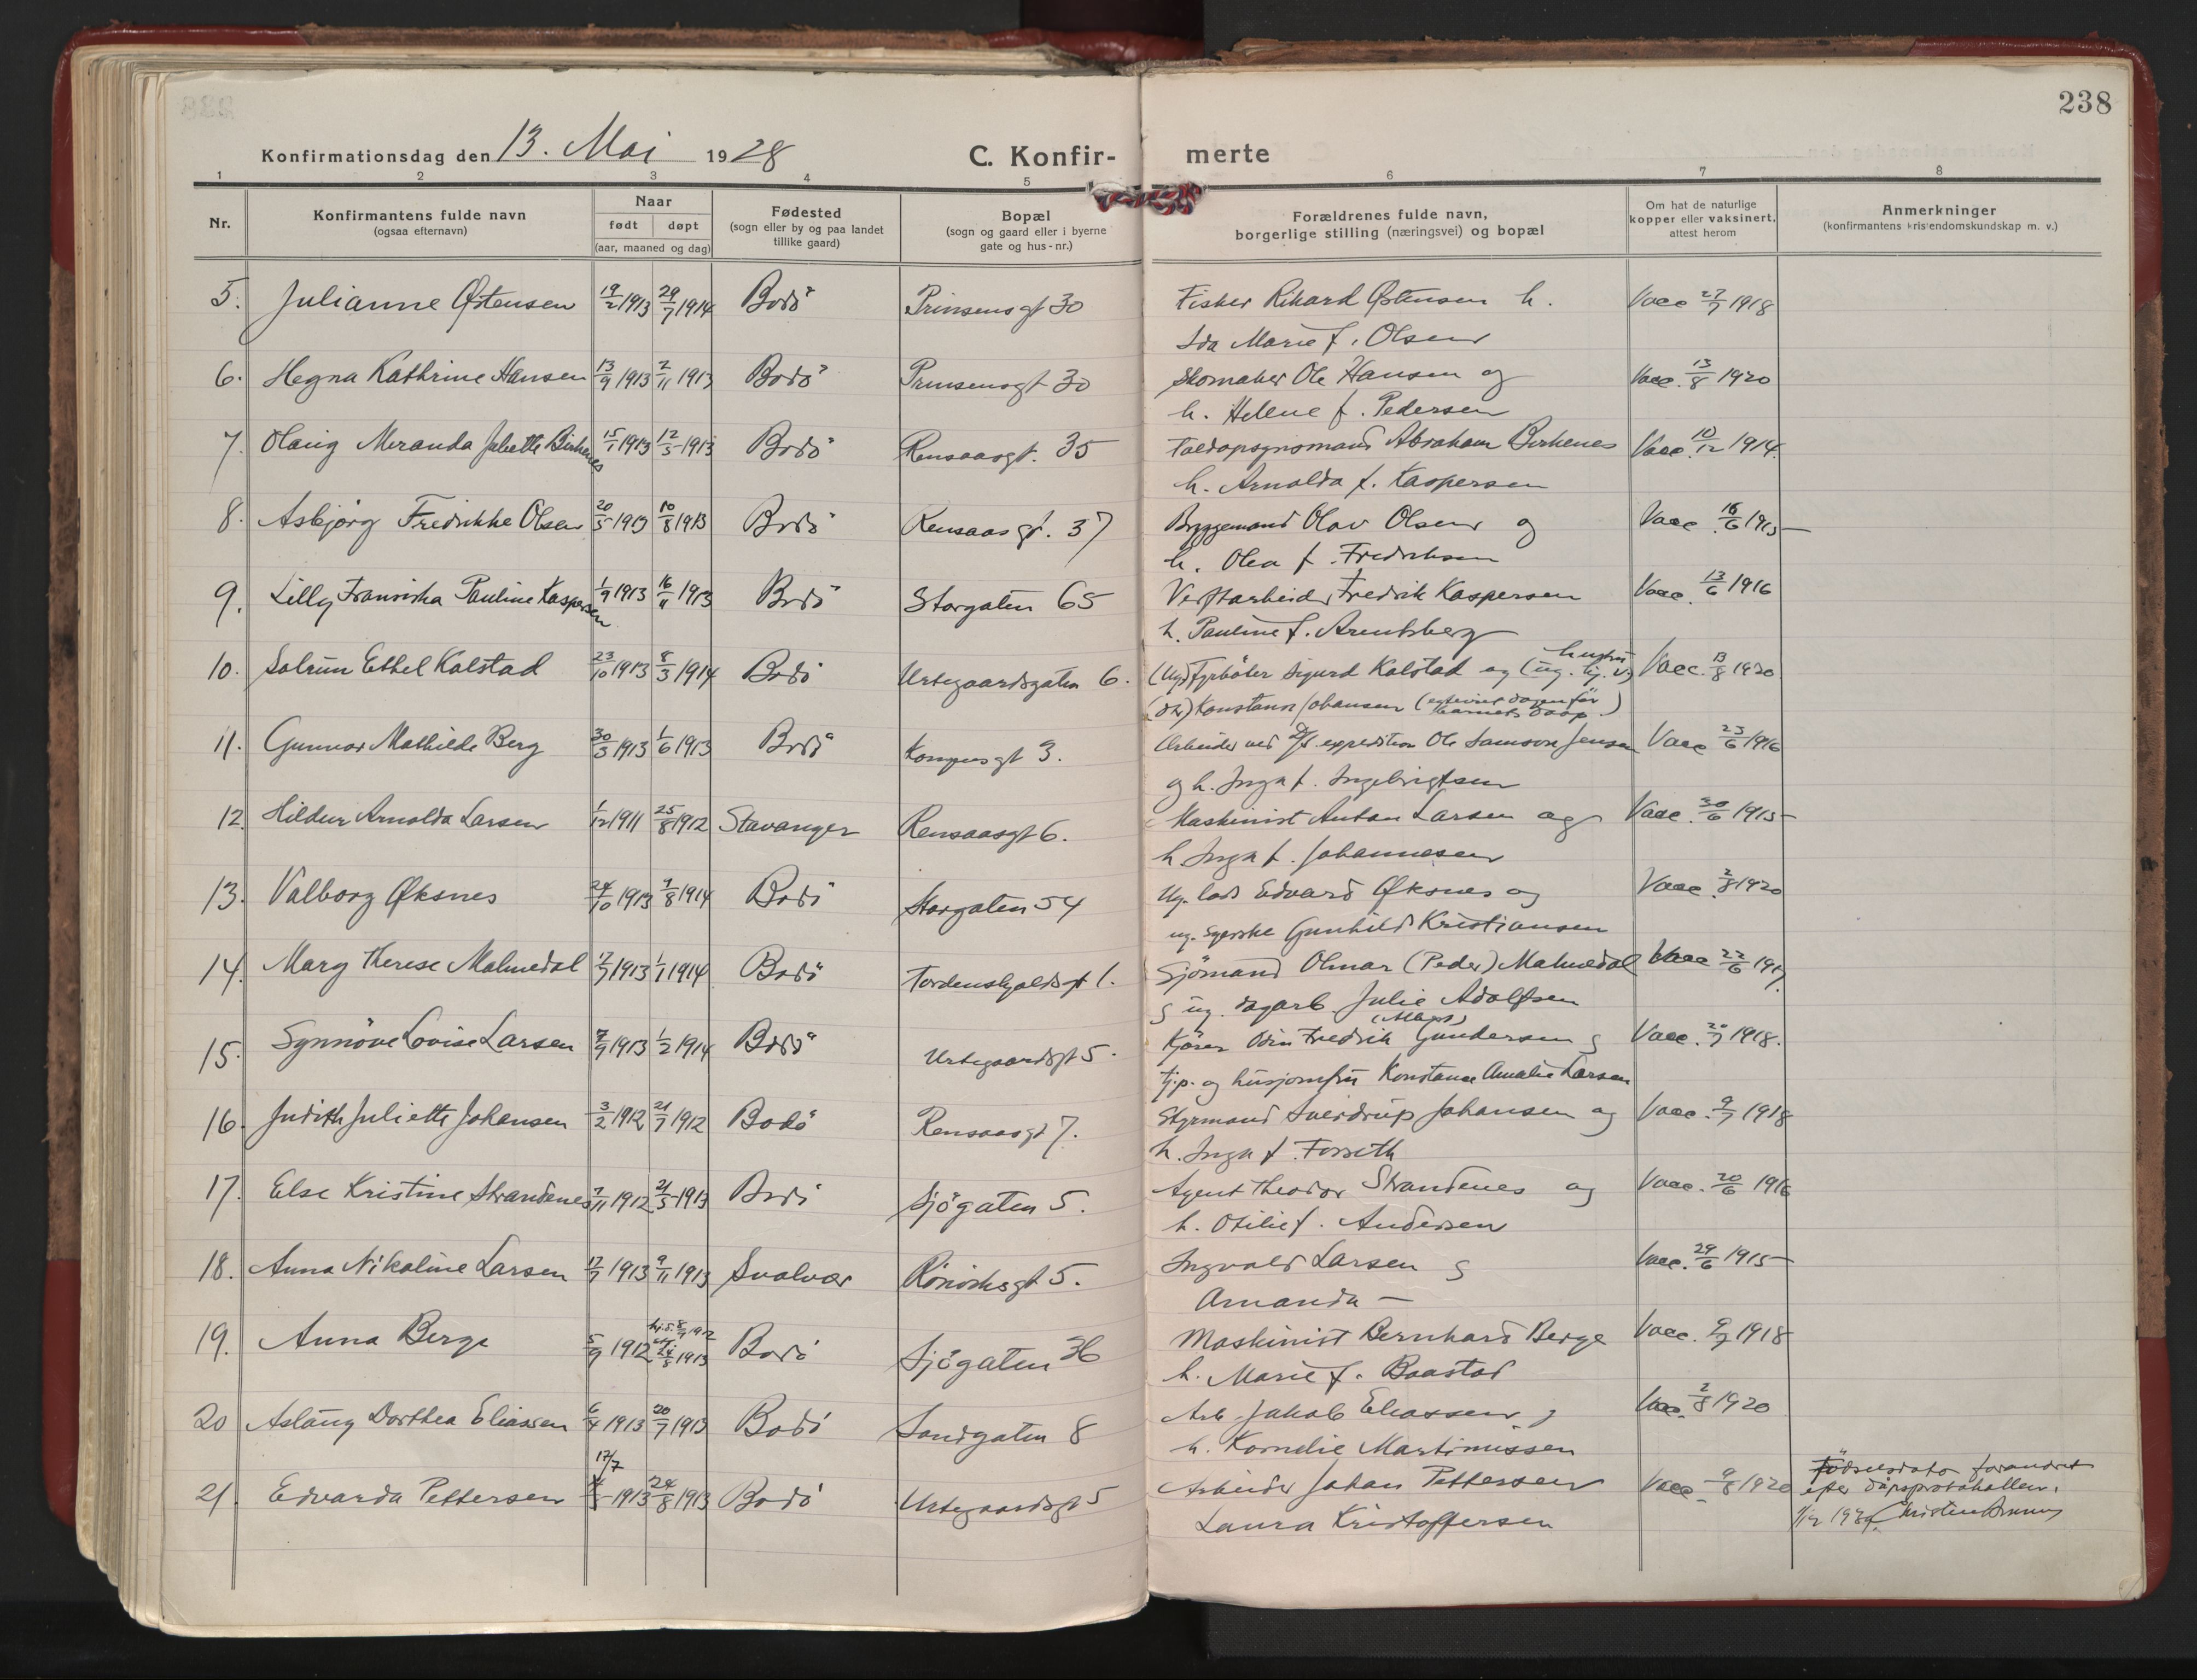 238
Konfirmationsdag den 13. Mai 1928
C. Konfir- merte
1 2 3 4 5 6 7 8
Nr.
Konfirmantens fulde navn
(ogsaa efternavn)
Naar
født døpt
(aar, maaned og dag)
Fødested
(sogn eller by og paa landet
tillike gaard)
Bopæl
(sogn og gaard eller i byerne
gate og hus-nr.)
Forældrenes fulde navn,
borgerlige stilling (næringsvei) og bopæl
Om hat de naturlige
kopper eller vaksinert,
attest herom
Anmerkninger
(konfirmantens kristendomskundskap m. v.)
5. Julianne Østensen 19/2 1913 29/7 1914 Bodö Prinsensgt 30 Fisker Rikard Østensen h. Vacc 27/7 1918
Ida Marie f. Olsen
6. Hegna Kathrine Hansen 13/9 1913 2/11 1913 Bodö Prinsensgt 30 Skomaker Ole Hansen og Vacc. 13/8 1920
h. Helene f. Pedersen
7. Olaug Meranda Juliette Birkenes 15/1 1913 12/3 1913 Bodö Rensaasgt. 35 Toldopsynsmand Abraham Birkenes Vacc. 10/12 1914
h. Arnolda f. Kaspersen
8. Asbjörg Fredrikke Olsen 20/5 1913 10/8 1913 Bodö Rensaasgt. 37 Bryggemand Olav Olsen og Vacc. 16/6 1915
h. Olea f. Fredriksen
9. Lilly Fransiska Pauline Kaspersen 1/9 1913 16/11 1913 Bodö Storgaten 65 Verftarbeider Fredrik Kaspersen Vacc. 13/6 1916
h. Pauline f. Arentsberg
10. Solrun Ethel Kolstad 23/10 1913 8/3 1914 Bodö Urtegaardsgaten 6. (Ug) Fyrböter Sigurd Kolstad og (ug. tj. v) hustru Vacc. 13/8 1920
Konstanse Johansen (egteviet dagen før barnets daap)
11. Gunnar Mathilde Berg 30/3 1913 1/6 1913 Bodö Kongensgt 3. Arbeider ved D/S expedition Ole Samson Jensen Vacc 23/6 1916
og h. Inga f. Ingebrigtsen
12. Hildur Arnolda Larsen 1/12 1911 25/8 1912 Stavanger Rensaasgt 6. Maskinist Anton Larsen og Vacc. 30/6 1915
h. Inga f. Johannesen
13. Valborg Øksnes 24/10 1913 9/8 1914 Bodö Storgaten 54 Ug. lods Edvard Øksnes og Vacc. 2/8 1920
ug. syerske Gunhild Kristiansen
14. Mary Therese Malmedal 2/7 1913 1/1 1914 Bodö Tordenskjoldsgt 1. Sjömand Olmar (Peder) Malmedal Vacc 22/6
ug. dagarb. Julie Adolfsen
15. Synnöve Lovise Larsen 7/9 1913 1/2 1914 Bodö Urtegaardsgt 5. Kjörer Odin Fredrik Gundersen Vacc. 20/7 1918.
tj.p. og husjomfru Konstanse Amalie Larsen
16. Judith Juliette Johansen 3/2 1912 21/7 1912 Bodö Rensaasgt 7. Styrmand Sverdrup Johansen og Vacc. 9/7 1918
h. Inga f. Forseth
17. Else Kristine Strandenes 7/11 1912 21/3 1913 Bodö Sjögaten 5. Agent Theodor Strandenes og Vacc. 20/6 1916
h. Otilie f. Andersen
18. Anna Nikoline Larsen 17/7 1913 9/11 1913 Svolvær Rönviksgt 5. Ingvald Larsen Vacc. 29/6 1915
Amanda —
19. Anna Berge 5/9 1912 24/8 1913 Bodö Sjögaten 36 Maskinist Bernhard Berge Vacc. 9/7 1918
h. Marie f. Baastad
20 Aslaug Dorthea Eliassen 6/4 1913 20/7 1913 Bodö Sandgaten 8 Arb. Jakob Eliassen Vacc. 2/8 1920
h. Kornelie Martinussen
17/7
21. Edvarda Pettersen 1913 24/8 1913 Bodö Urtegaardsgt 5 Arbeider Johan Pettersen Vacc. 9/8 1920 Födselsdato forandret
Laura Kristoffersen efter dåpsprotokollen.